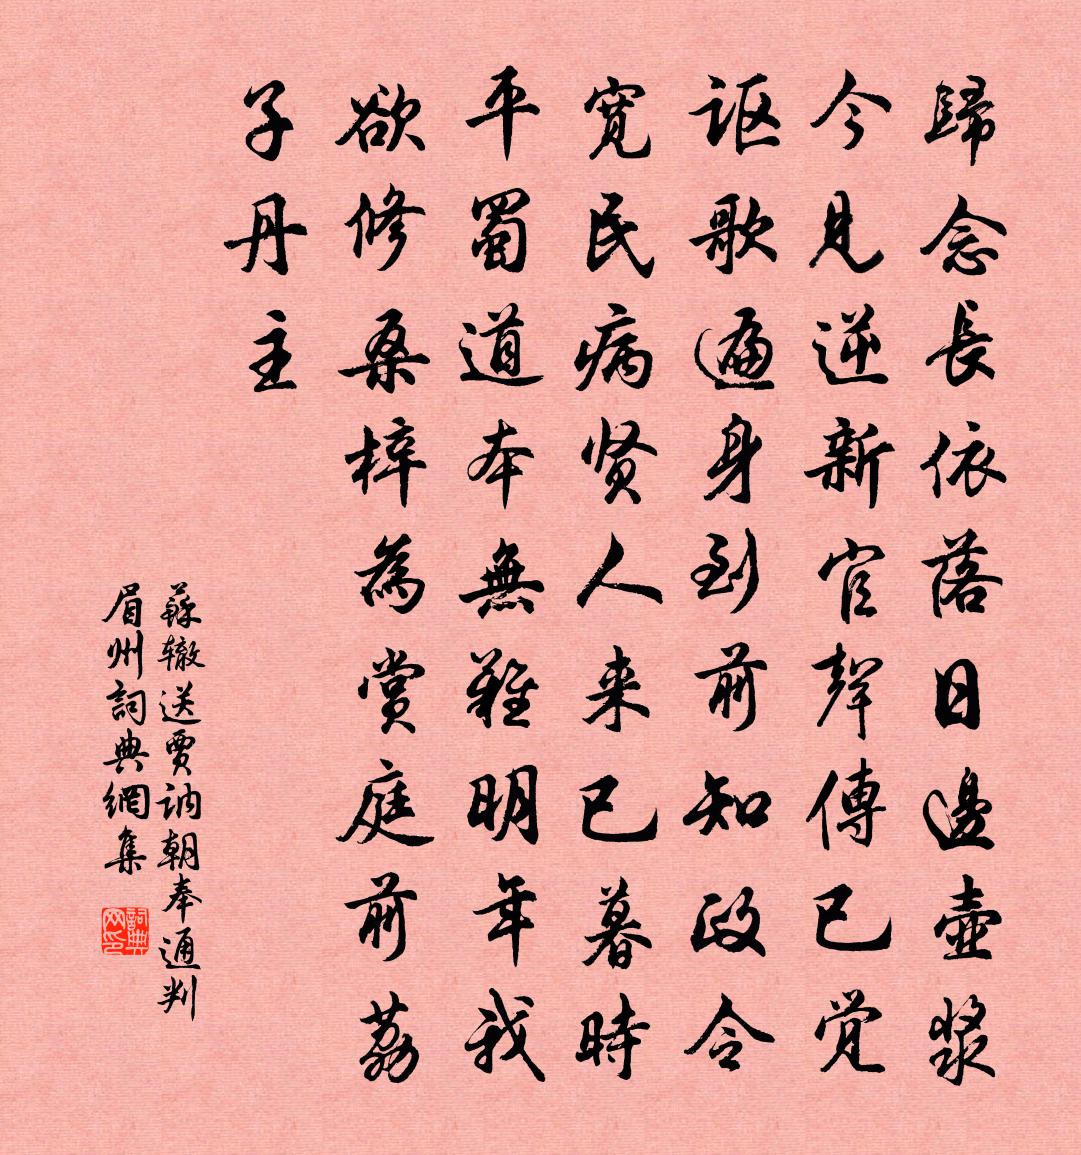 歸念長依落日邊壺漿
今見逆新官聲傳已觉
讴歌遍身到前知政令
寬民病贤人来已暮時
平蜀道本無難明年我
欲修桑梓為赏庭前荔
子丹主
蘇辙送賈讷朝奉通判
眉州詞典網集
詞典网印